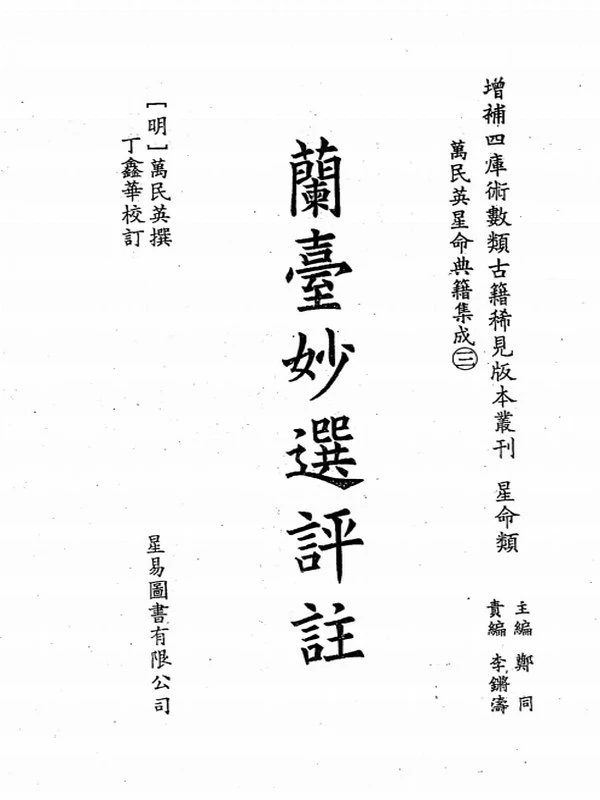 增補四庫術數類古籍稀見版本叢刊 星命類
主編 鄭同
責編 李鏘濤
萬民英星命典籍集成㊂
蘭臺妙選評註
[明]萬民英撰
丁鑫華校訂
星易圖書有限公司